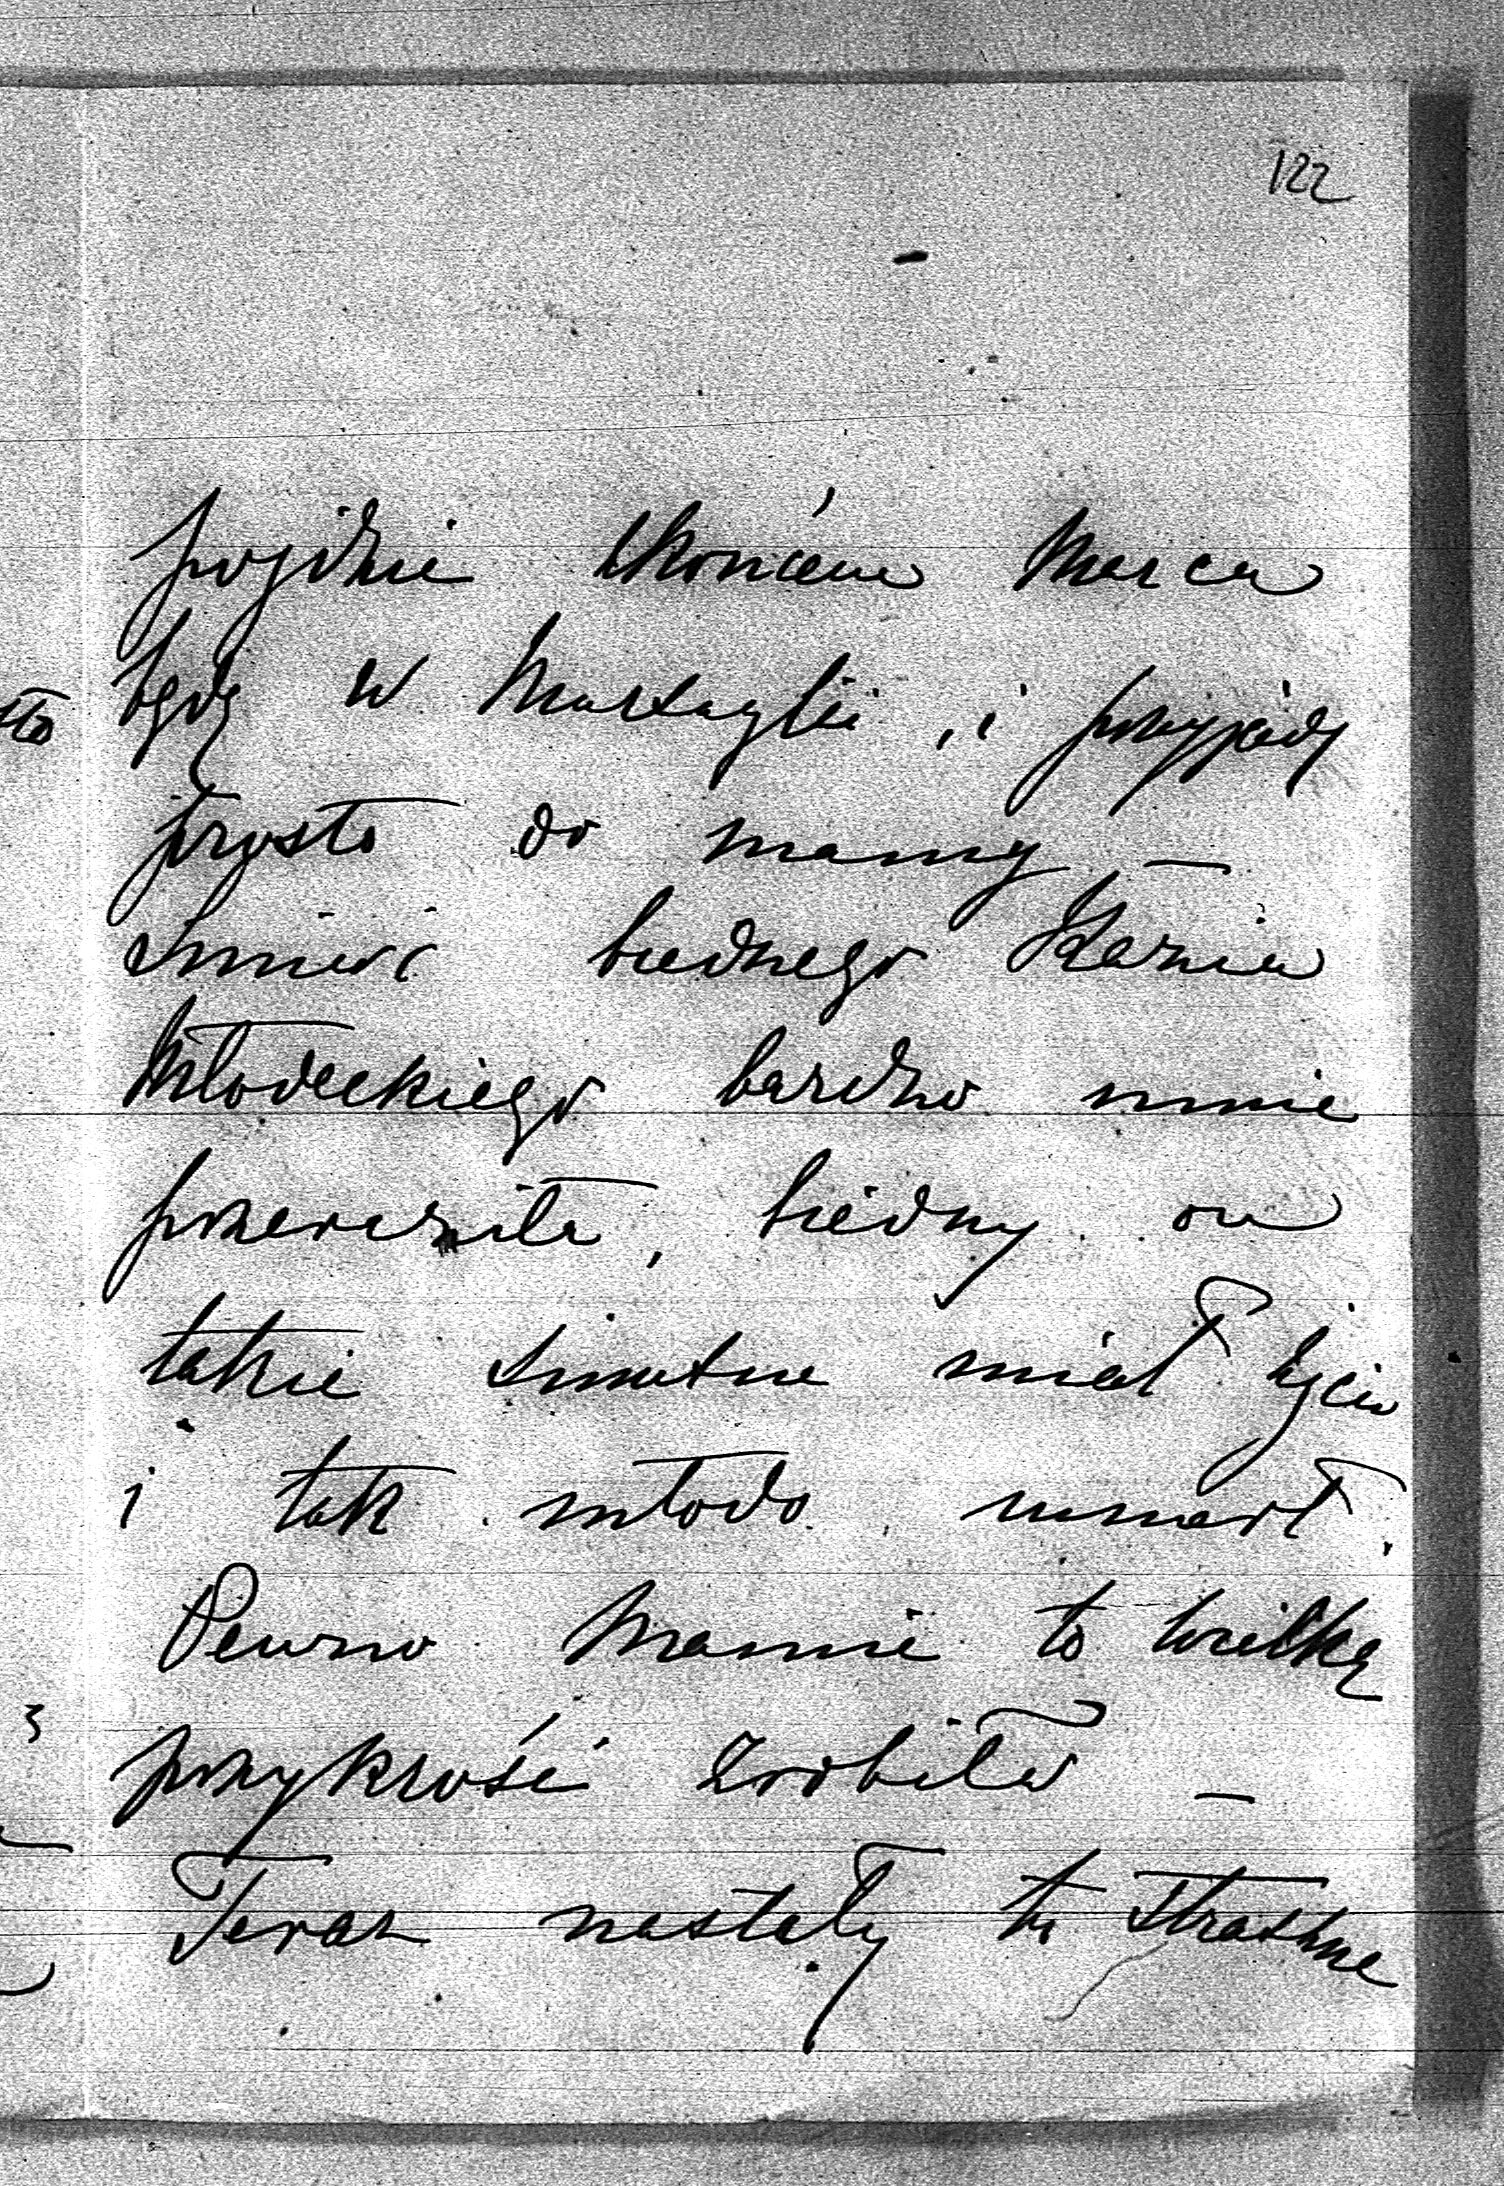 122
pojdzie skońcem Marca
będę w Marsaylii, i przyjadę
prosto do mamy —
Smierć biednego Kazia
Młodeckiego bardzo mnie
przeraziła, biedny on
takie smutne miał życie
i tak młodo umarł.
Pewno Mamie to wielką
przykrość zrobiła —
Teraz nastały tu straszne